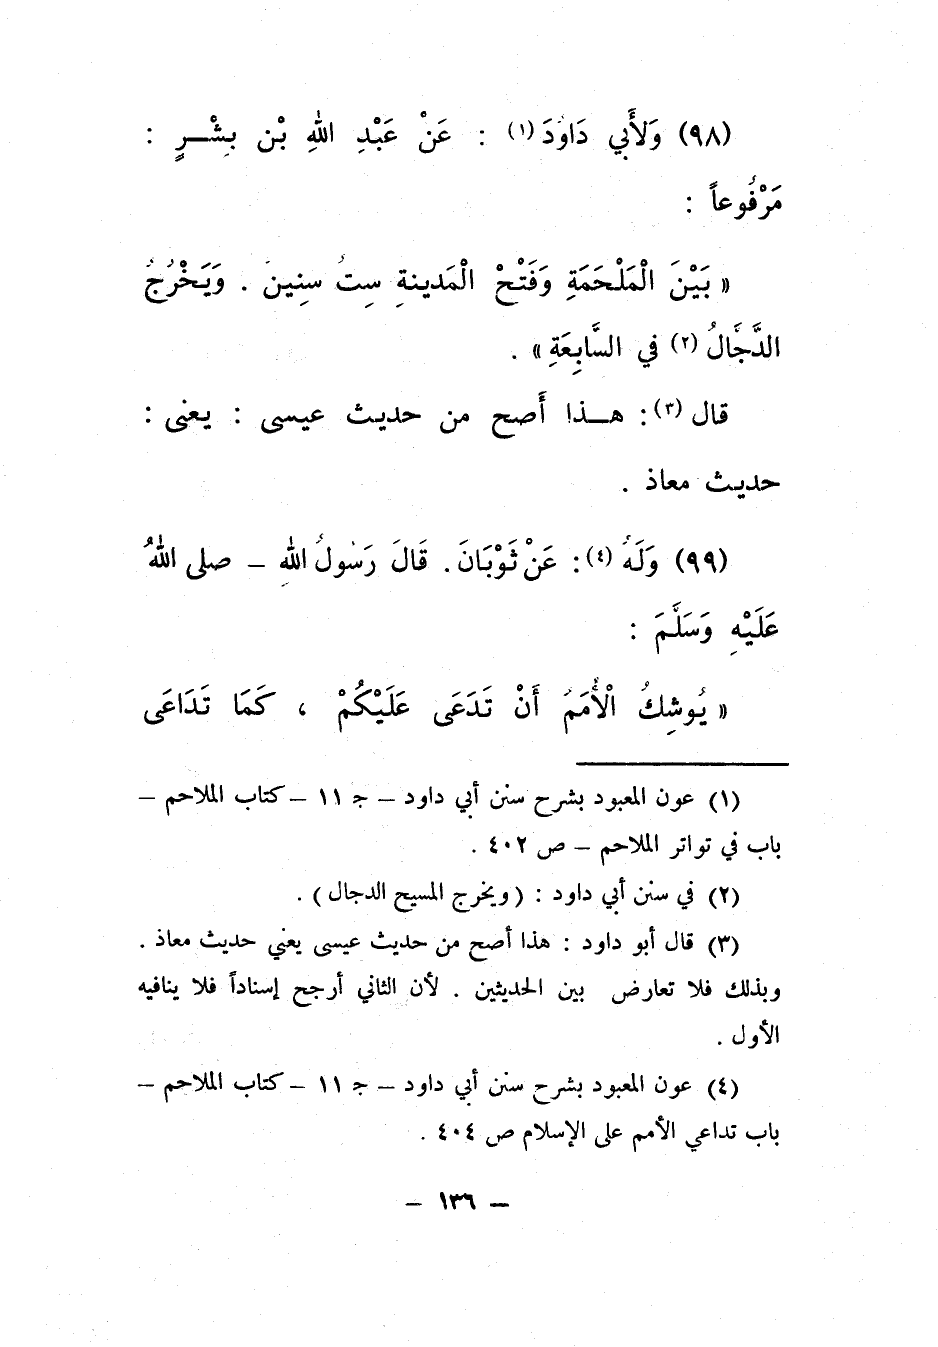 (٩٨) وَلأَبي دَاوُدَ (١) : عَنْ عَبْدِ اللهِ بْن بِشْرٍ :
مَرْفُوعاً :
« بَيْنَ الْمَلْحَمَةِ وَفَتْحْ الْمَدينةِ سِتُ سِنِينَ . وَيَخْرُجُ
الدَّجَّالُ (٢) في السَّابِعَةِ » .
قال (٣) : هـذا أَصح من حديث عيسى : يعنى :
حديث معاذ .
(٩٩) وَلَهُ (٤) : عَنْ ثَوْبَانَ . قَالَ رَسُولُ اللهِ – صلى اللهُ
عَلَيْهِ وَسَلَّمَ :
« يُوشِكُ الْأُمَمُ أَنْ تَدَعَى عَلَيْكُمْ ، كَمَا تَدَاعَى
(١) عون المعبود بشرح سنن أبي داود – جـ ١١ – كتاب الملاحم –
باب في تواتر الملاحم – ص ٤٠٢ .
(٢) في سنن أبي داود : (ويخرج المسيح الدجال) .
(٣) قال أبو داود : هذا أصح من حديث عيسى يعني حديث معاذ .
وبذلك فلا تعارض بين الحديثين . لأن الثاني أرجح إسناداً فلا ينافيه
الأول .
(٤) عون المعبود بشرح سنن أبي داود – جـ ١١ – كتاب الملاحم –
باب تداعي الأمم على الإسلام ص ٤٠٤ .
– ١٣٦ –